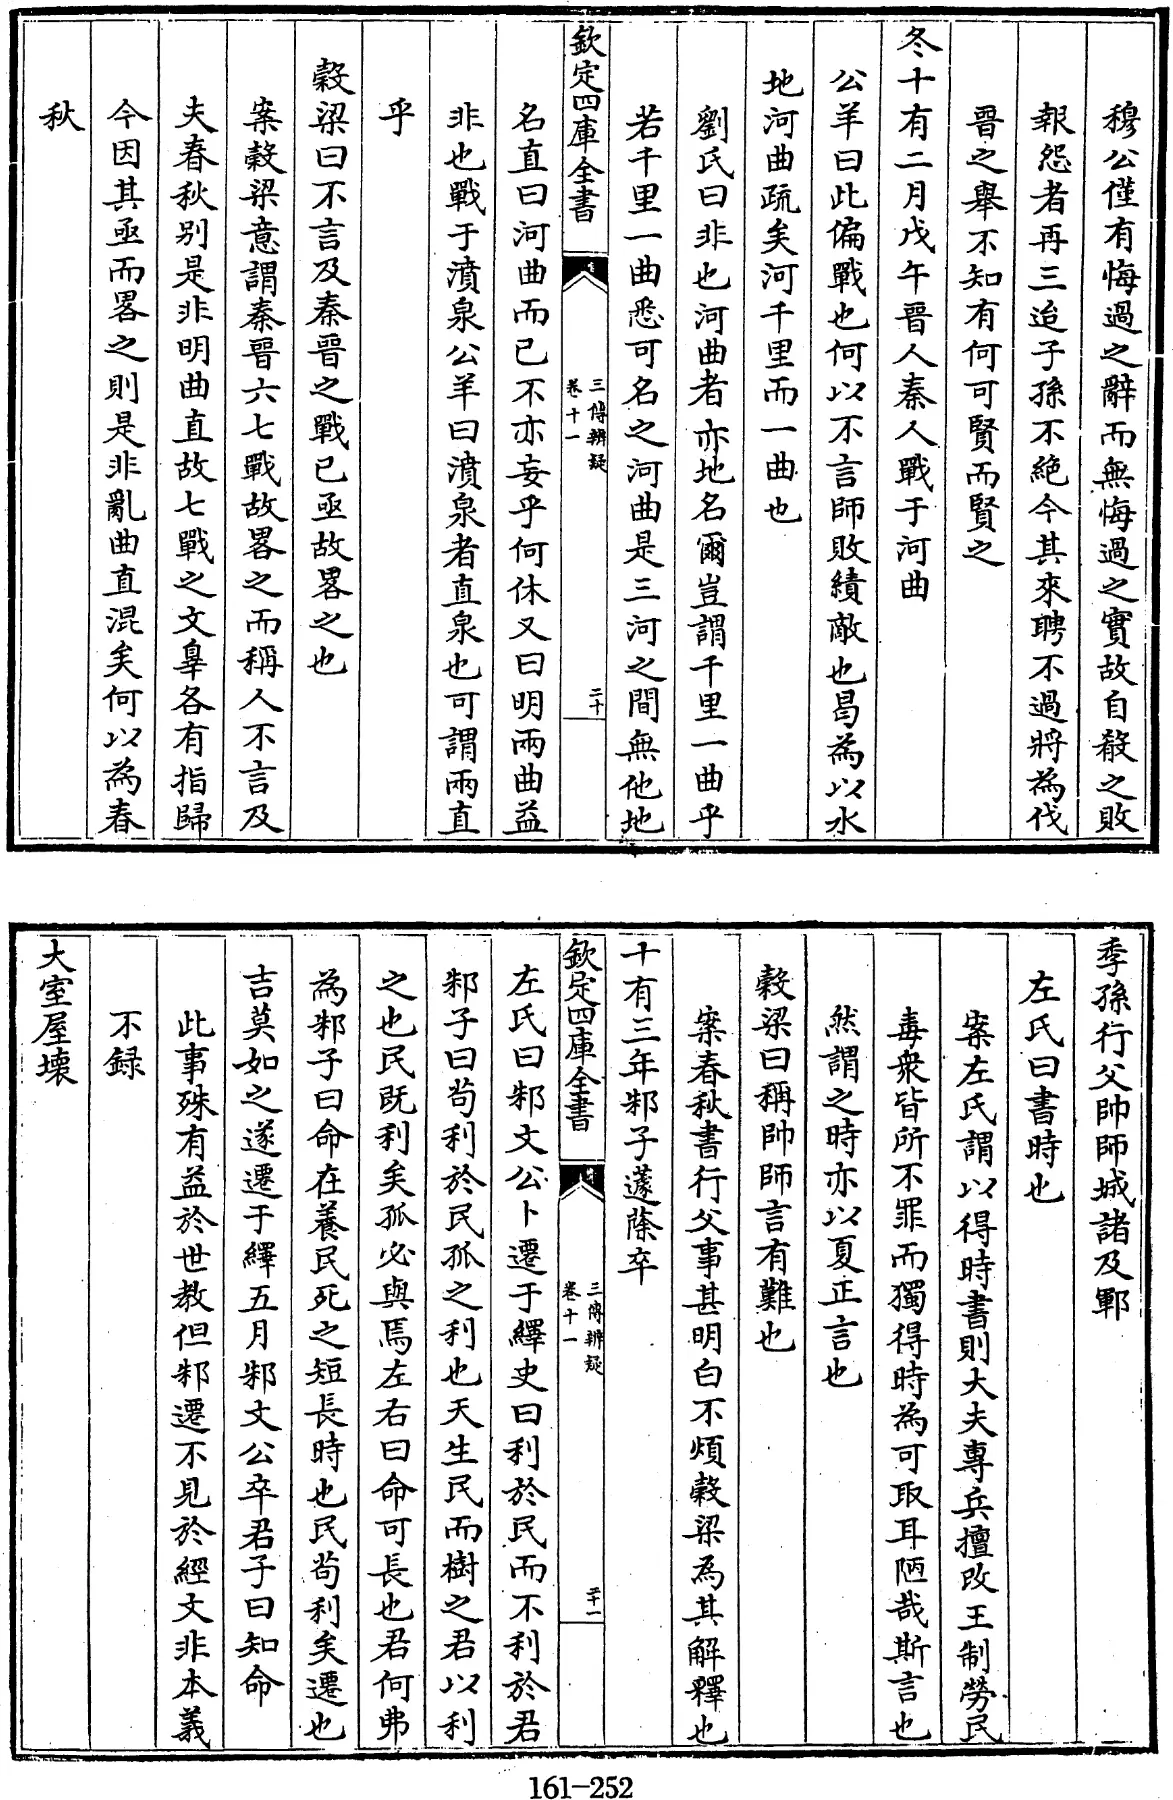 穆公僅有悔過之辭而無悔過之實故自殽之敗
報怨者再三迨子孫不絶今其來聘不過將為伐
晋之舉不知有何可賢而賢之
冬十有二月戊午晉人秦人戰于河曲
公羊曰此偏戰也何以不言師敗績敵也曷為以水
地河曲疏矣河千里而一曲也
劉氏曰非也河曲者亦地名爾豈謂千里一曲乎
若千里一曲悉可名之河曲是三河之間無他地
欽定四庫全書
三傳辨疑
卷十一
二十
名直曰河曲而已不亦妄乎何休又曰明兩曲益
非也戰于濆泉公羊曰濆泉者直泉也可謂兩直
乎
穀梁曰不言及秦晉之戰已亟故畧之也
案穀梁意謂秦晉六七戰故畧之而稱人不言及
夫春秋别是非明曲直故七戰之文辠各有指歸
今因其亟而畧之則是非亂曲直混矣何以為春
秋
季孫行父帥師城諸及鄆
左氏曰書時也
案左氏謂以得時書則大夫專兵擅改王制勞民
毒衆皆所不罪而獨得時為可取耳陋哉斯言也
然謂之時亦以夏正言也
穀梁曰稱帥師言有難也
案春秋書行父事甚明白不煩穀梁為其解釋也
十有三年邾子蘧蒢卒
欽定四庫全書
三傳辨疑
卷十一
二十一
左氏曰邾文公卜遷于繹史曰利於民而不利於君
邾子曰苟利於民孤之利也天生民而樹之君以利
之也民既利矣孤必與焉左右曰命可長也君何弗
為邾子曰命在養民死之短長時也民苟利矣遷也
吉莫如之遂遷于繹五月邾文公卒君子曰知命
此事殊有益於世教但邾遷不見於經文非本義
不録
大室屋壊
161-252